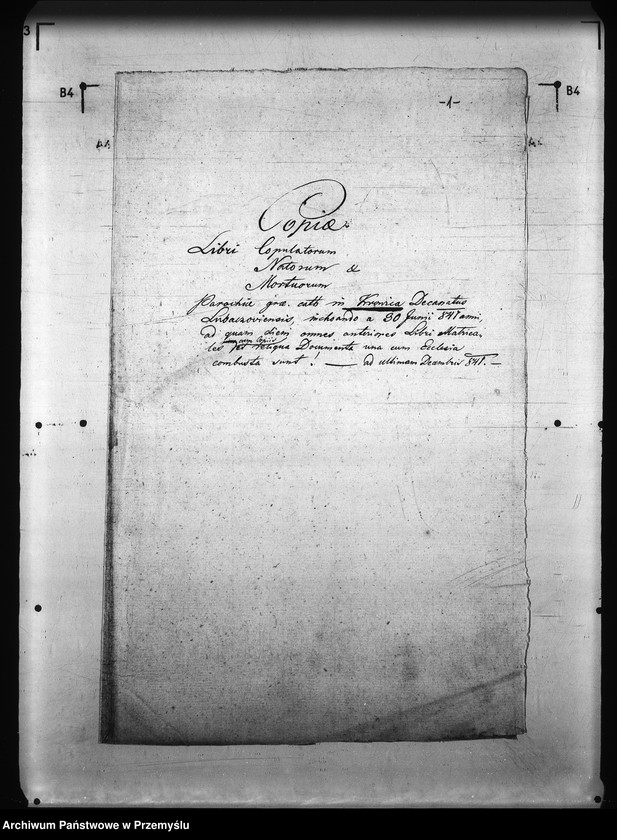 3
B4
B4
-1-
Copiæ
Libri Copulatorum
Natorum &
Mortuorum
Parochiæ gra. cath in Krowica Decanatus
Lubaczoviensis, inchoando a 30 Junii 841 anni,
ad quam diem omnes anteriores Libri Matrica-
les cum copiis et reliqua Documenta una cum Ecclesia
combusta sunt! — ad ultimam Decembris 841. —
Archiwum Państwowe w Przemyślu